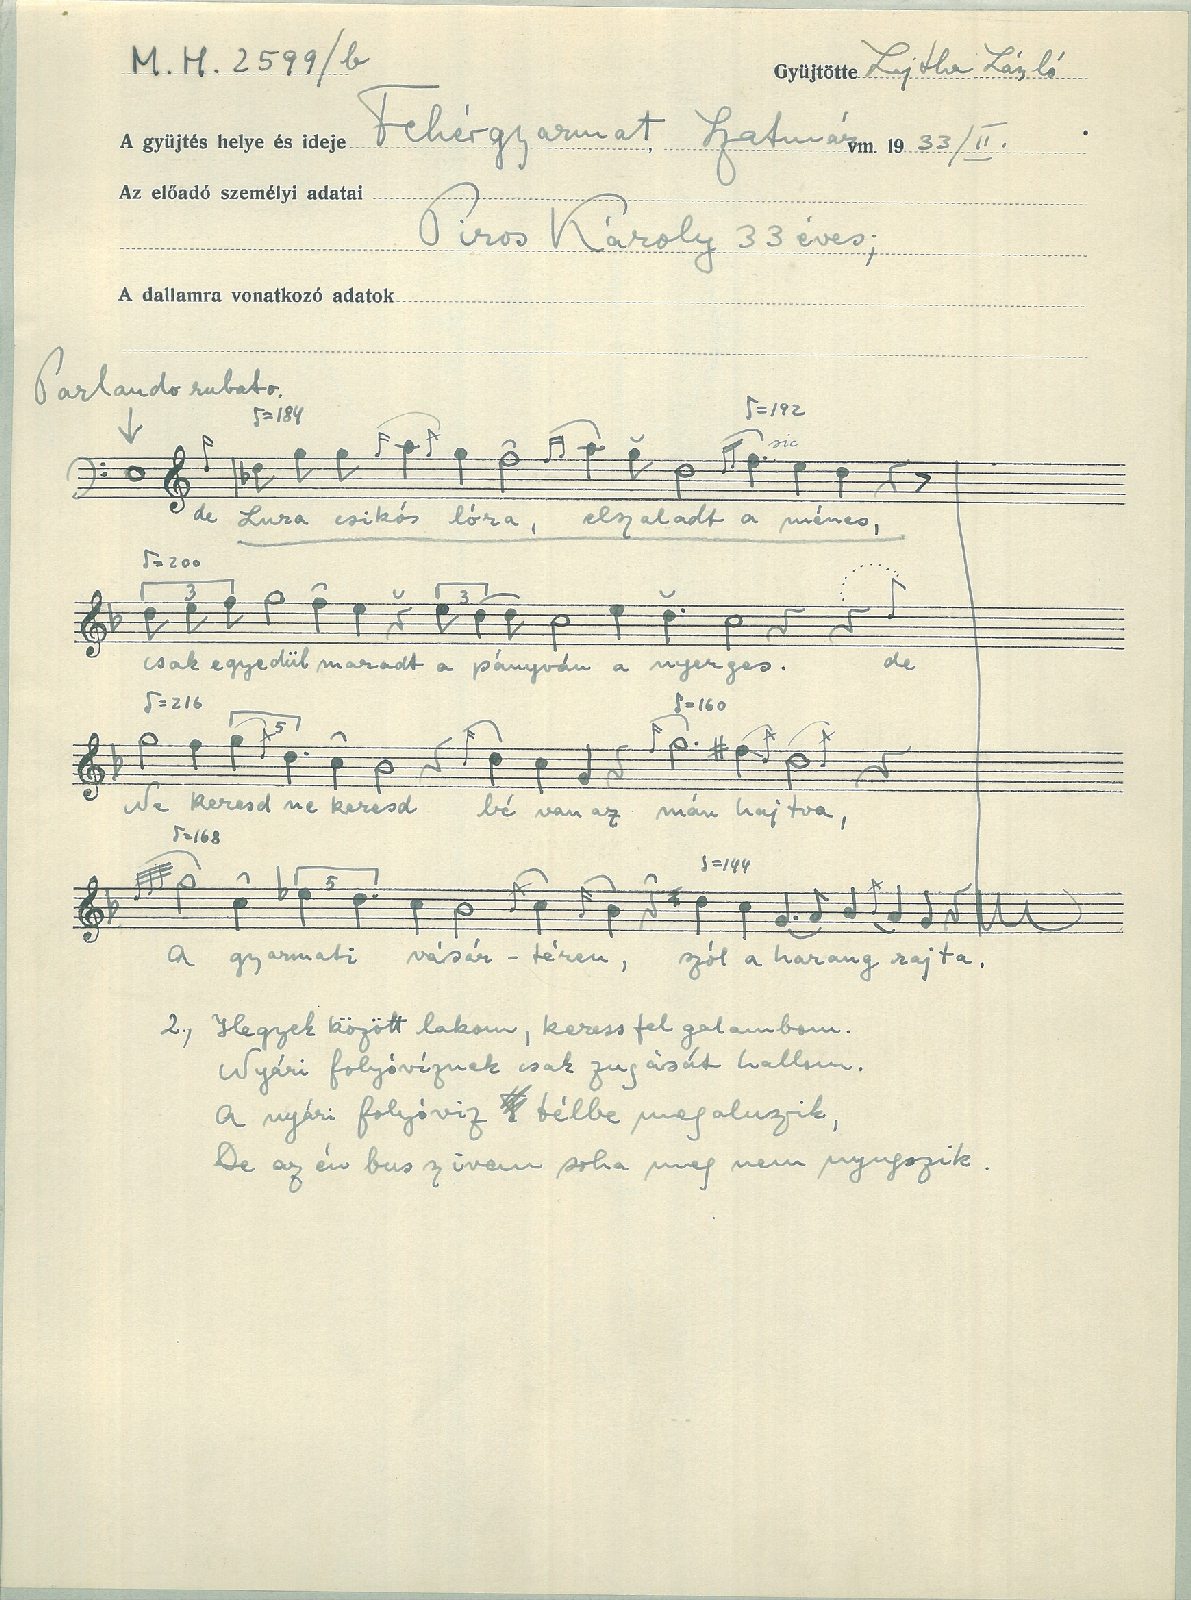 M.H. 2599/b
Gyüjtötte Lajtha László
A gyüjtés helye és ideje Fehérgyarmat, Szatmár vm. 19 33/II.
Az előadó személyi adatai
Piros Károly 33 éves;
A dallamra vonatkozó adatok
Parlando rubato.
♪=184 ♪=192
sic
de Lura csikós lóra, elszaladt a ménes,
♪=200
3 3
csak egyedül maradt a pányván a nyerges. de
♪=216 ♪=160
5
Ne keresd ne keresd bé van az mán hajtva,
♪=168 ♪=144
5
A gyarmati vásár-téren, szól a harang rajta.
2., Hegyek között lakom, keress fel galambom.
Nyári folyóvíznek csak zugását hallom.
A nyári folyóviz télbe megaluszik,
De az én bus zivem soha meg nem nyugszik.